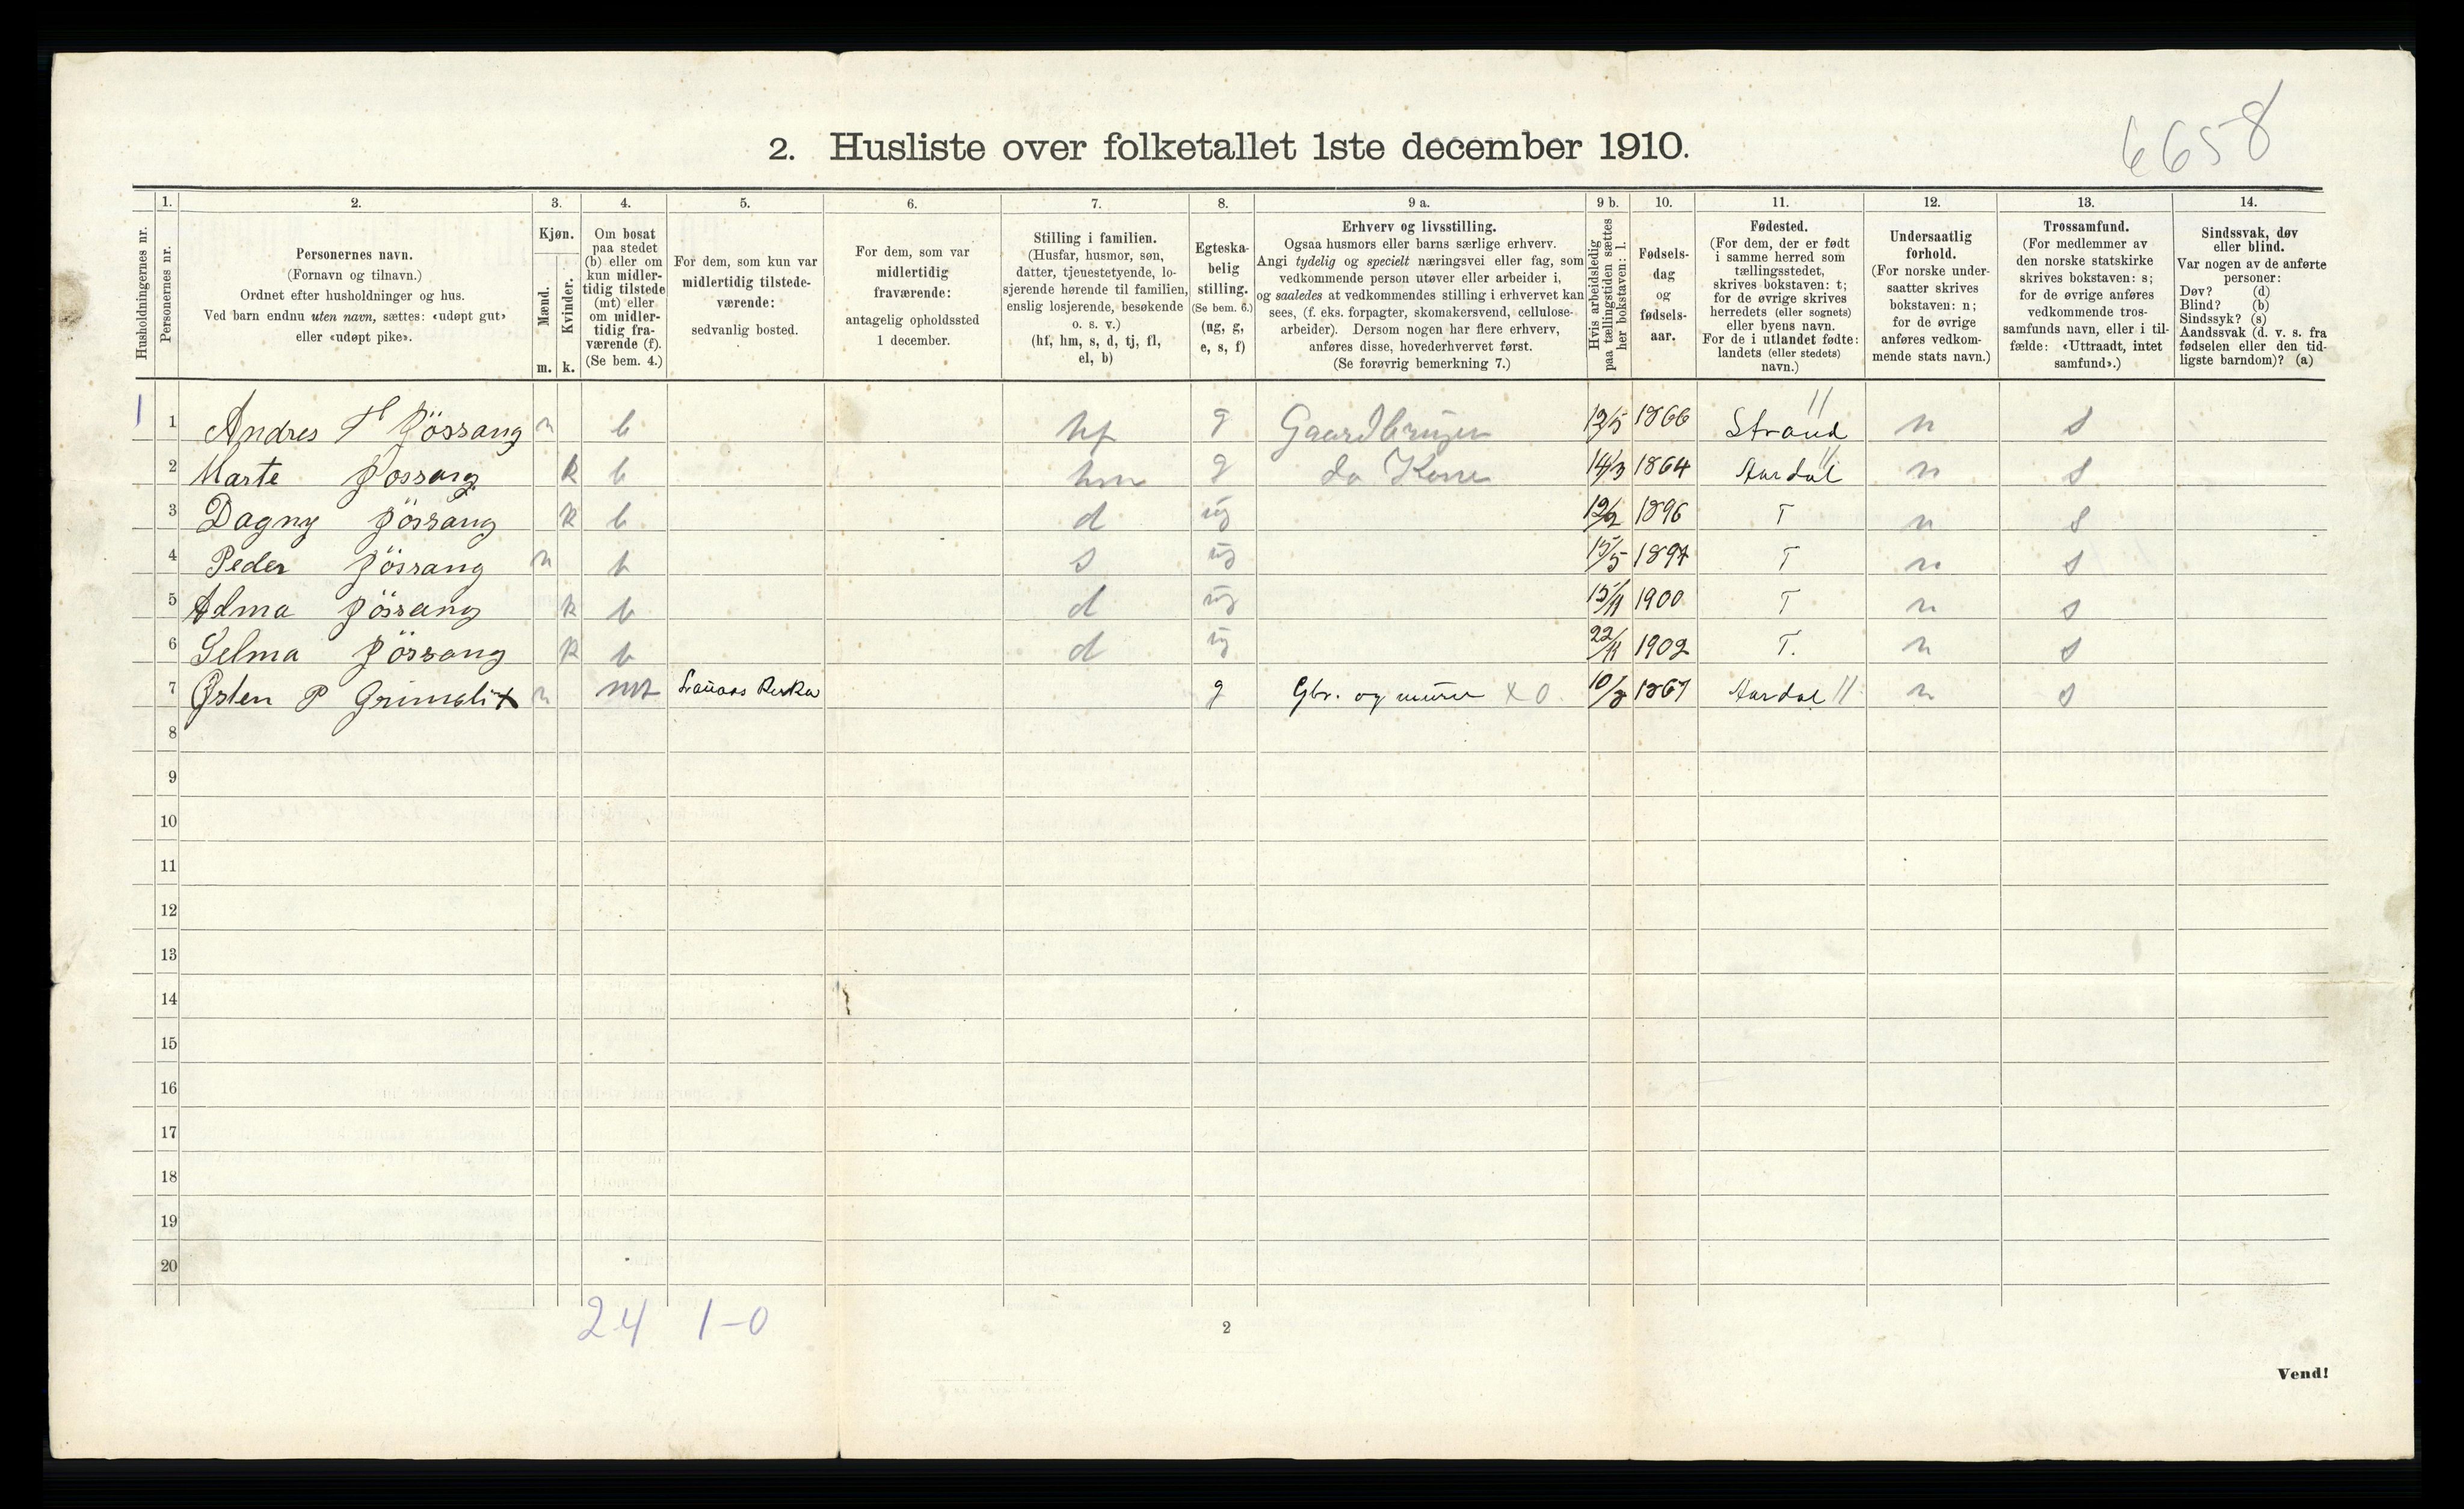 6658
2. Husliste over folketallet 1ste december 1910.
Husholdningernes nr.
1.
Personernes nr.
2.
Personernes navn.
(Fornavn og tilnavn.)
Ordnet efter husholdninger og hus.
Ved barn endnu uten navn, sættes: «udøpt gut»
eller «udøpt pike».
3.
Kjøn.
Mænd.
Kvinder.
m. k.
4.
Om bosat
paa stedet
(b) eller om
kun midler-
tidig tilstede
(mt) eller
om midler-
tidig fra-
værende (f).
(Se bem. 4.)
5.
For dem, som kun var
midlertidig tilstede-
værende:
sedvanlig bosted.
6.
For dem, som var
midlertidig
fraværende:
antagelig opholdssted
1 december.
7.
Stilling i familien.
(Husfar, husmor, søn,
datter, tjenestetyende, lo-
sjerende hørende til familien,
enslig losjerende, besøkende
o. s. v.)
(hf, hm, s, d, tj, fl,
el, b)
8.
Egteska-
belig
stilling.
(Se bem. 6.)
(ug, g,
e, s, f)
9 a.
Erhverv og livsstilling.
Ogsaa husmors eller barns særlige erhverv.
Angi tydelig og specielt næringsvei eller fag, som
vedkommende person utøver eller arbeider i,
og saaledes at vedkommendes stilling i erhvervet kan
sees, (f. eks. forpagter, skomakersvend, cellulose-
arbeider). Dersom nogen har flere erhverv,
anføres disse, hovederhvervet først.
(Se forøvrig bemerkning 7.)
9 b.
Hvis arbeidsledig
paa tællingstiden sættes
her bokstaven: l.
10.
Fødsels-
dag
og
fødsels-
aar.
11.
Fødested.
(For dem, der er født
i samme herred som
tællingsstedet,
skrives bokstaven: t;
for de øvrige skrives
herredets (eller sognets)
eller byens navn.
For de i utlandet fødte:
landets (eller stedets)
navn.)
12.
Undersaatlig
forhold.
(For norske under-
saatter skrives
bokstaven: n;
for de øvrige
anføres vedkom-
mende stats navn.)
13.
Trossamfund.
(For medlemmer av
den norske statskirke
skrives bokstaven: s;
for de øvrige anføres
vedkommende tros-
samfunds navn, eller i til-
fælde: «Uttraadt, intet
samfund».)
14.
Sindssvak, døv
eller blind.
Var nogen av de anførte
personer:
Døv? (d)
Blind? (b)
Sindssyk? (s)
Aandssvak (d. v. s. fra
fødselen eller den tid-
ligste barndom)? (a)
1 1 Andres T Jössang m b hf g Gaardbruger 12/5 1866 Strand n s
2 Marte Jossang k b hm g do Kone 14/3 1864 Aardal n s
3 Dagny Jössang k b d ug 12/2 1896 T n s
4 Peder Jössang m b s ug 15/5 1897 T n s
5 Alma Jössang k b d ug 15/11 1900 T n s
6 Selma Jössang k b d ug 22/11 1902 T. n s
7 Østen P m mt g Gbr. og murer x 0 10/8 1867 Aardal n s
8
9
10
11
12
13
14
15
16
17
18
19
20
24 1-0
2
Vend!